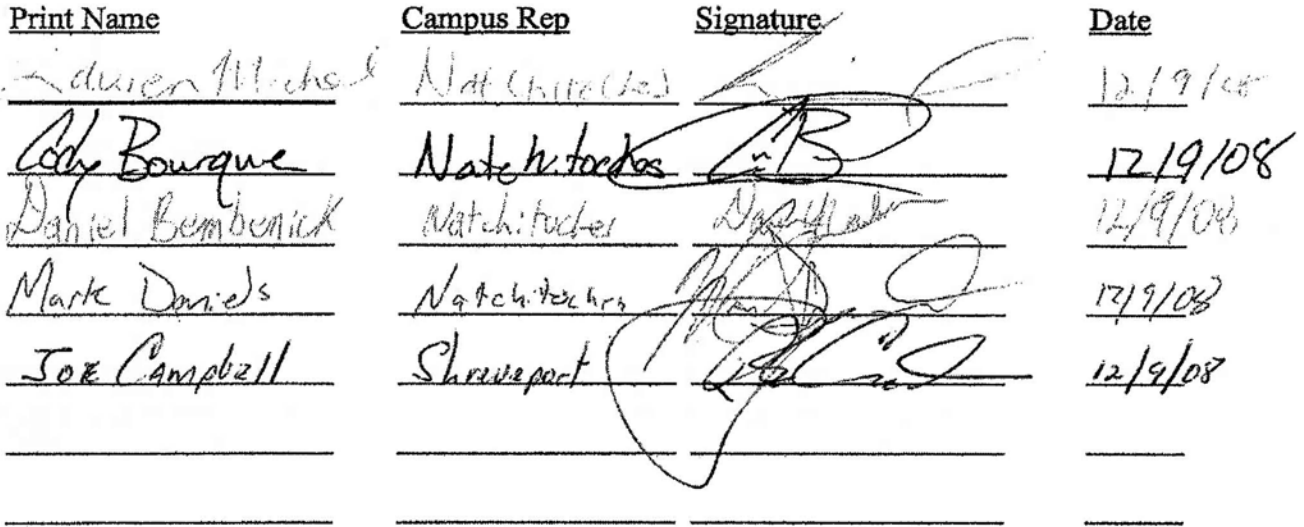 Print Name Campus Rep Signature Date
Michael Natchitoches 12/9/08
Cody Bourque Natchitoches CB 12/9/08
Daniel Bembenick Natchitoches 12/9/08
Mark Daniels Natchitoches 12/9/08
Joe Campbell Shreveport 12/9/08